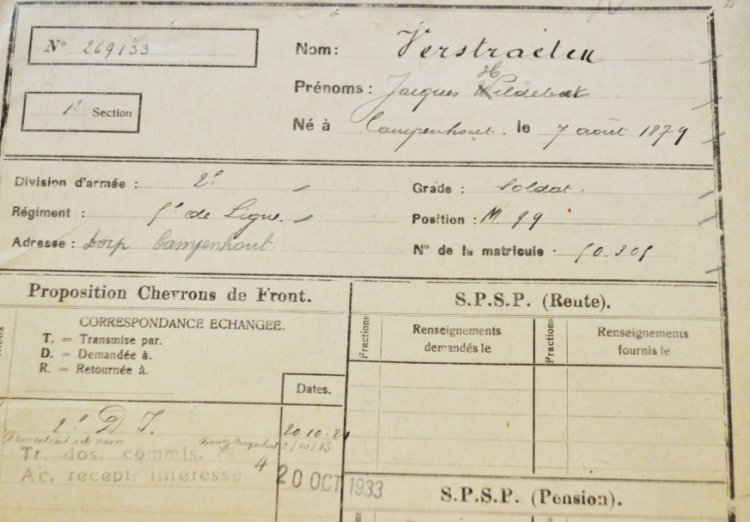 N° 269133
Nom: Verstraeten
Prénoms: Jacques Hildebert
1e Section
Né à Campenhout le 7 août 1879
Division d'armée : 2e
Grade : Soldat.
Régiment : 5e de Ligne
Position : M. 99
Adresse : Dorp Campenhout
N° de la matricule 50.305
Proposition Chevrons de Front.
S.P.S.P. (Rente).
CORRESPONDANCE ECHANGÉE.
T. = Transmise par.
D. = Demandée à.
R. = Retournée à.
Dates.
Fractions
Renseignements
demandés le
Fractions
Renseignements
fournis le
2e D. I.
20-10-21
Tr. dos. commis. N° 4
Ac. recept. interesse
20 OCT 1933
S.P.S.P. (Pension).